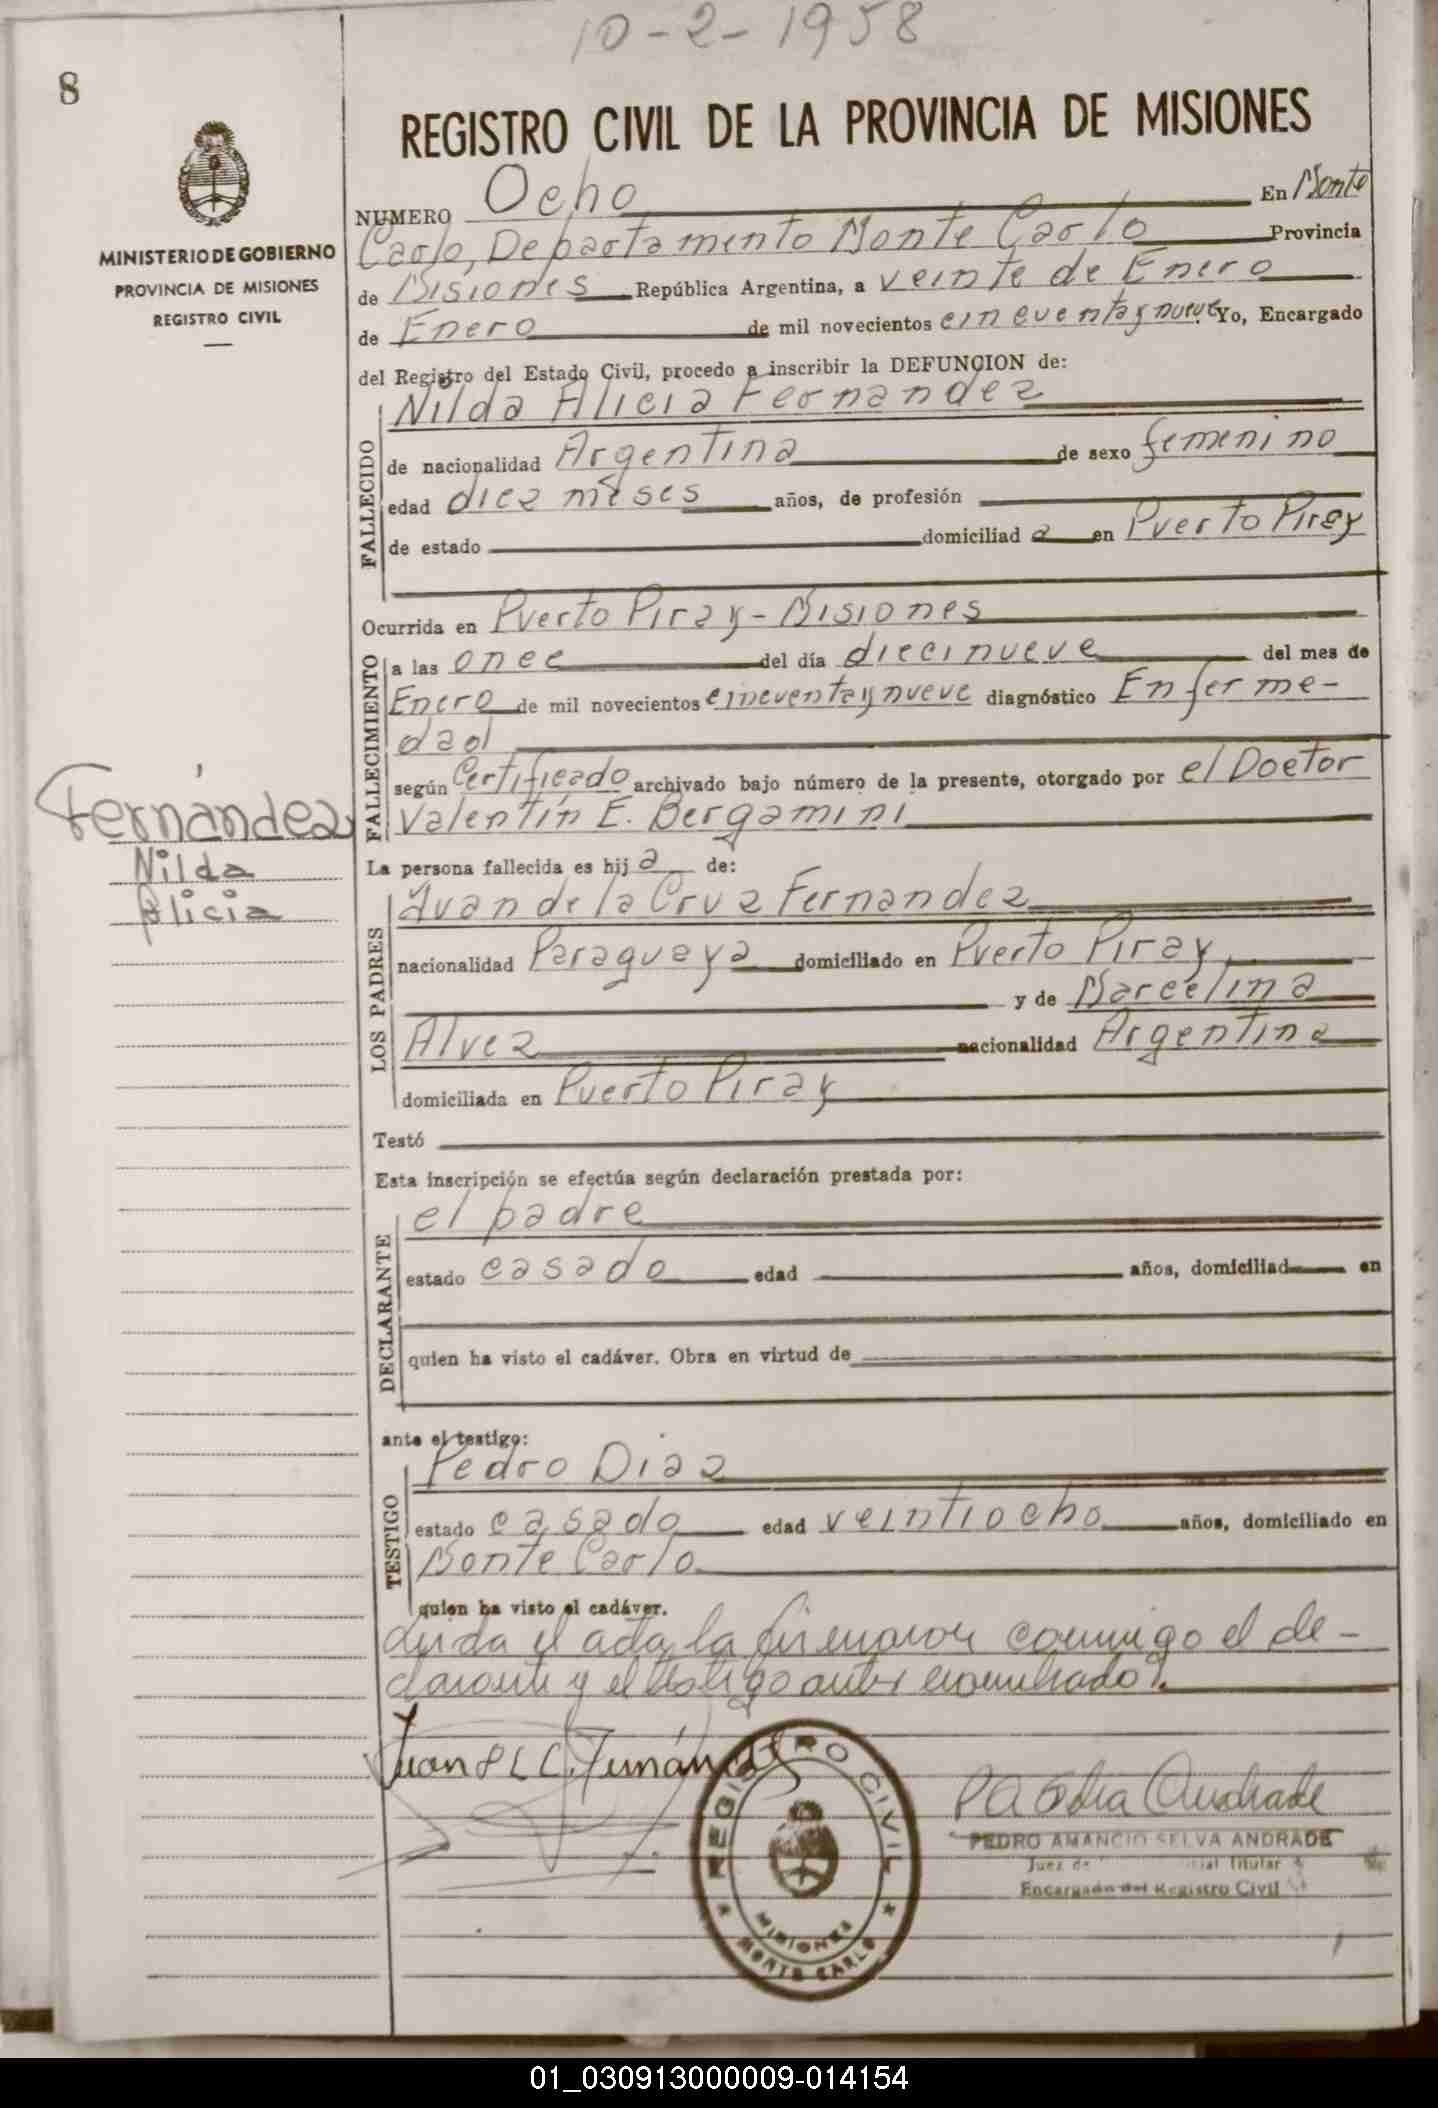 10-2-1958
8
REGISTRO CIVIL DE LA PROVINCIA DE MISIONES
MINISTERIO DE GOBIERNO
PROVINCIA DE MISIONES
REGISTRO CIVIL
NUMERO Ocho En Monte
Carlo, Departamento Monte Carlo Provincia
de Misiones República Argentina, a veinte de Enero
de Enero de mil novecientos cincuenta y nueve Yo, Encargado
del Registro del Estado Civil, procedo a inscribir la DEFUNCION de:
FALLECIDO
Nilda Alicia Fernandez
de nacionalidad Argentina de sexo femenino
edad diez meses años, de profesión
de estado domiciliad a en Puerto Piray
Ocurrida en Puerto Piray - Misiones
FALLECIMIENTO
a las once del día diecinueve del mes de
Enero de mil novecientos cincuenta y nueve diagnóstico Enferme-
dad
según Certificado archivado bajo número de la presente, otorgado por el Doctor
Valentín E. Bergamini
Fernández
Nilda
Alicia
La persona fallecida es hij a de:
LOS PADRES
Juan de la Cruz Fernandez
nacionalidad Paraguaya domiciliado en Puerto Piray
y de Marcelina
Alvez nacionalidad Argentina
domiciliada en Puerto Piray
Testó
Esta inscripción se efectúa según declaración prestada por:
DECLARANTE
el padre
estado casado edad años, domiciliad en
quien ha visto el cadáver. Obra en virtud de
ante el testigo:
TESTIGO
Pedro Diaz
estado casado edad veintiocho años, domiciliado en
Monte Carlo
quien ha visto el cadáver.
Leida el acta, la firmaron conmigo el de-
clarante y el testigo antes nombrado.
Juan de L C. Fernández
REGISTRO CIVIL
MISIONES
MONTE CARLO
PA Selva Andrade
PEDRO AMANCIO SELVA ANDRADE
Juez de Titular
Encargado del Registro Civil
01_030913000009-014154